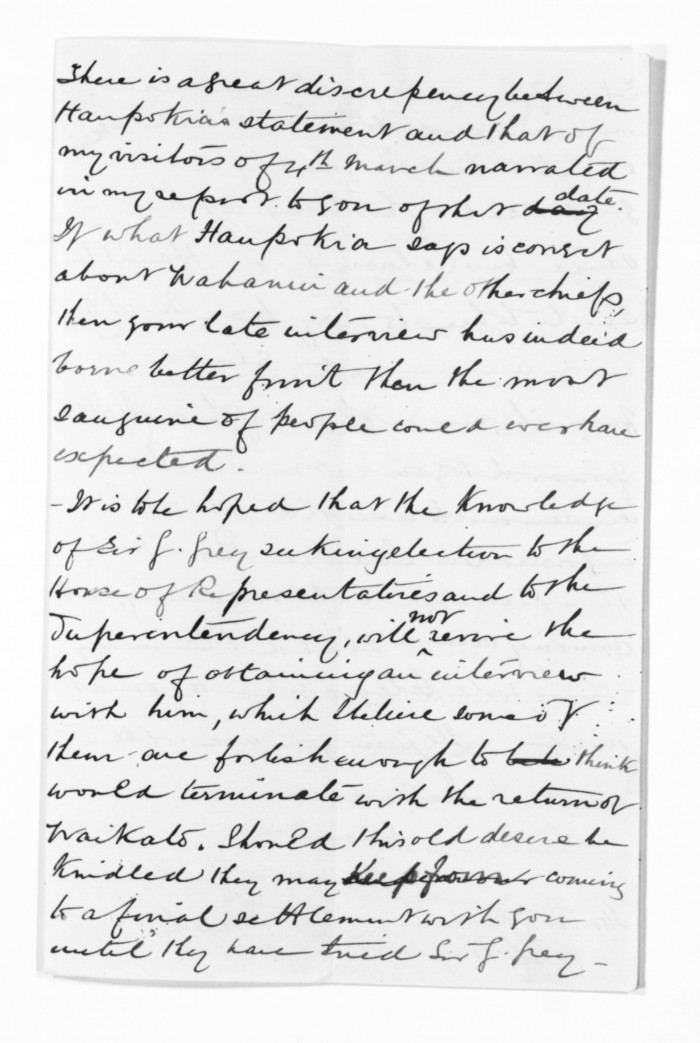 There is a great discrepency between
Haupokia's statement and that of
my visitors of 4th March narrated
in my report to you of that day date.
If what Haupokia says is correct
about Wahanui and the other chiefs,
then your late interview has indeed
borne better fruit than the most
sanguine of people could ever have
expected.
- It is to be hoped that the Knowledge
of Sir G. Grey seeking election to the
House of Representatives and to the
Superintendency, will not revive the
hope of obtaining an interview
with him, which I believe some of
them are foolish enough to think
would terminate with the return of
Waikato. Should this old desire be
Kindled they may coming
to a final settlement with you
until they have tried Sir G. Grey -